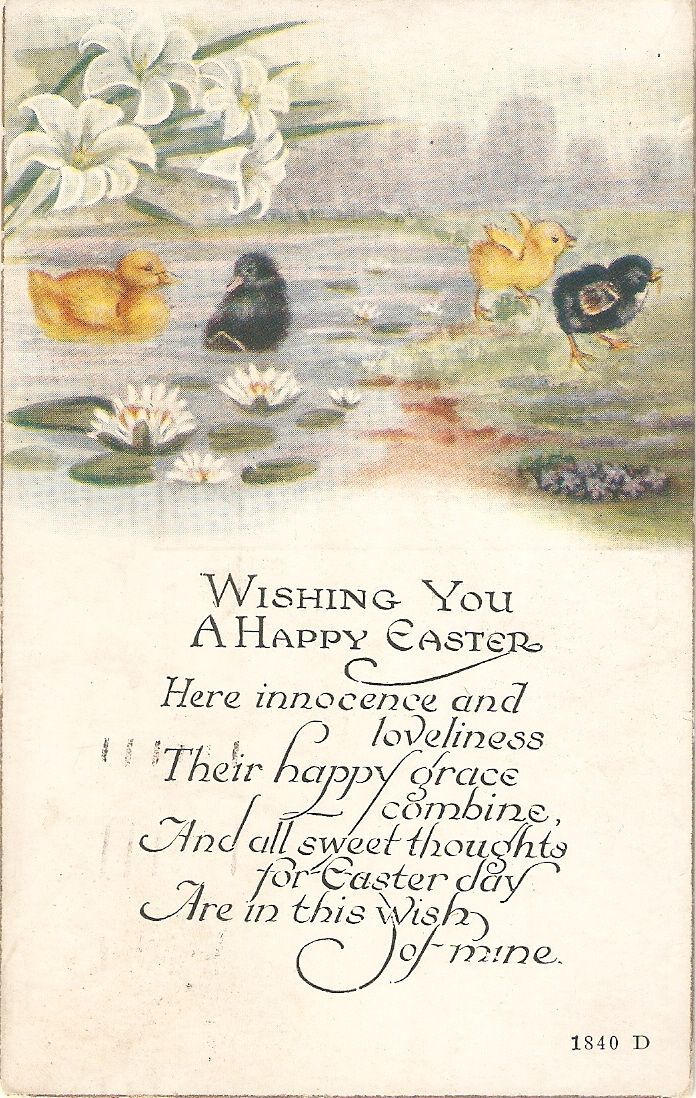 Wishing You
A Happy Easter
Here innocence and
loveliness
Their happy grace
combine,
And all sweet thoughts
for Easter day
Are in this Wish
of mine.
1840 D